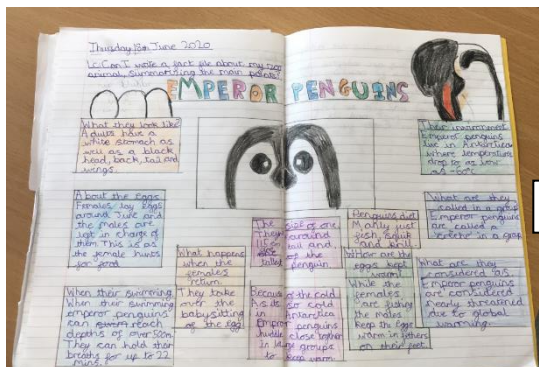 Thursday 18th June 2020
Lc: Can I write a fact file about my zoo
animal, summarising the main points?
EMPEROR PENGUINS
What they look like?
Adults have a
white stomach as
well as a black
head, back, tail and
wings.
About the eggs
Females lay eggs
around June and
the males are
left in charge of
them This is as
the female hunts
for food
When their swimming
When their swimming
emperor penguins
can reach
depths of over 500m
They can hold their
breaths for up to 22
mins.
What happens
when the
females
return
They take
over the
babysitting
of the egg
The size of one
They around
tall and
of the
penguin.
Because of the cold
As its so cold
in Antarctica
Emperor penguins
huddle close together
in large groups
to keep warm.
Penguins diet
Mainly just
fish, squid
and krill
How are the
eggs kept
warm
While the
females
are fishing
the males
keep the eggs
warm in
on their feet
Their environment
Emperor penguins
live in Antarctica
where temperature
drop so as low
as -60°c
What are they
called in a group
Emperor penguins
are called a
in a group
What are they
considered as
Emperor penguins
are considered
nearly threatened
due to global
warming.